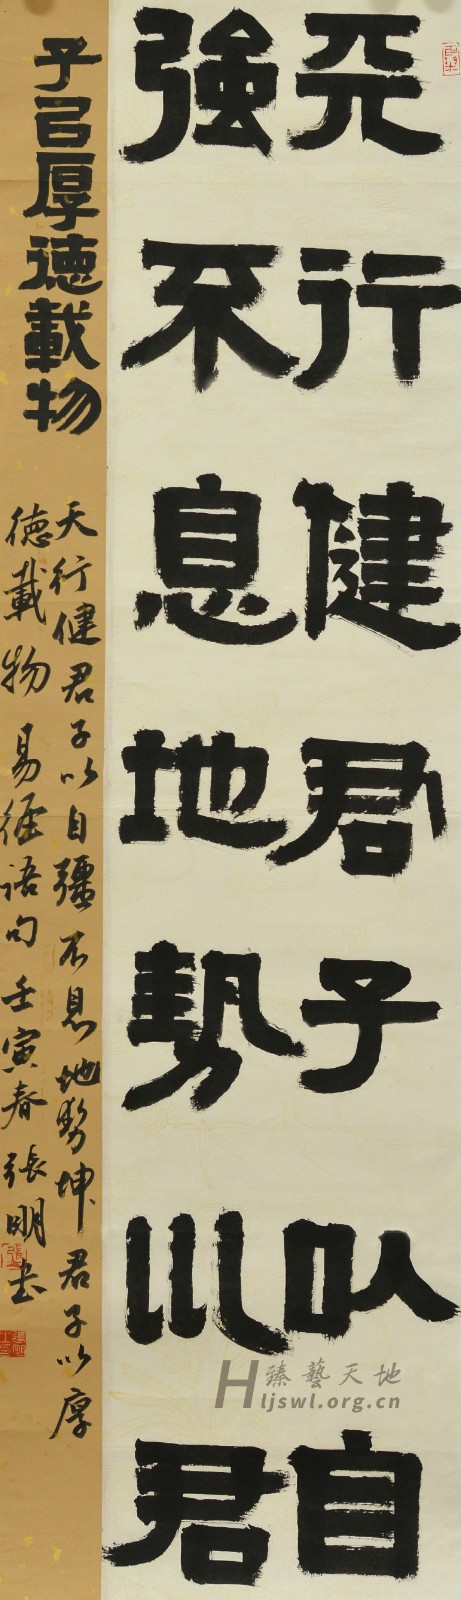 天行健君子以自
強不息地勢川君
子㠯厚德載物
天行健君子以自彊不息地勢坤君子以厚
德載物 易經語句 壬寅春 張明书
臻藝天地
Hljswl.org.cn